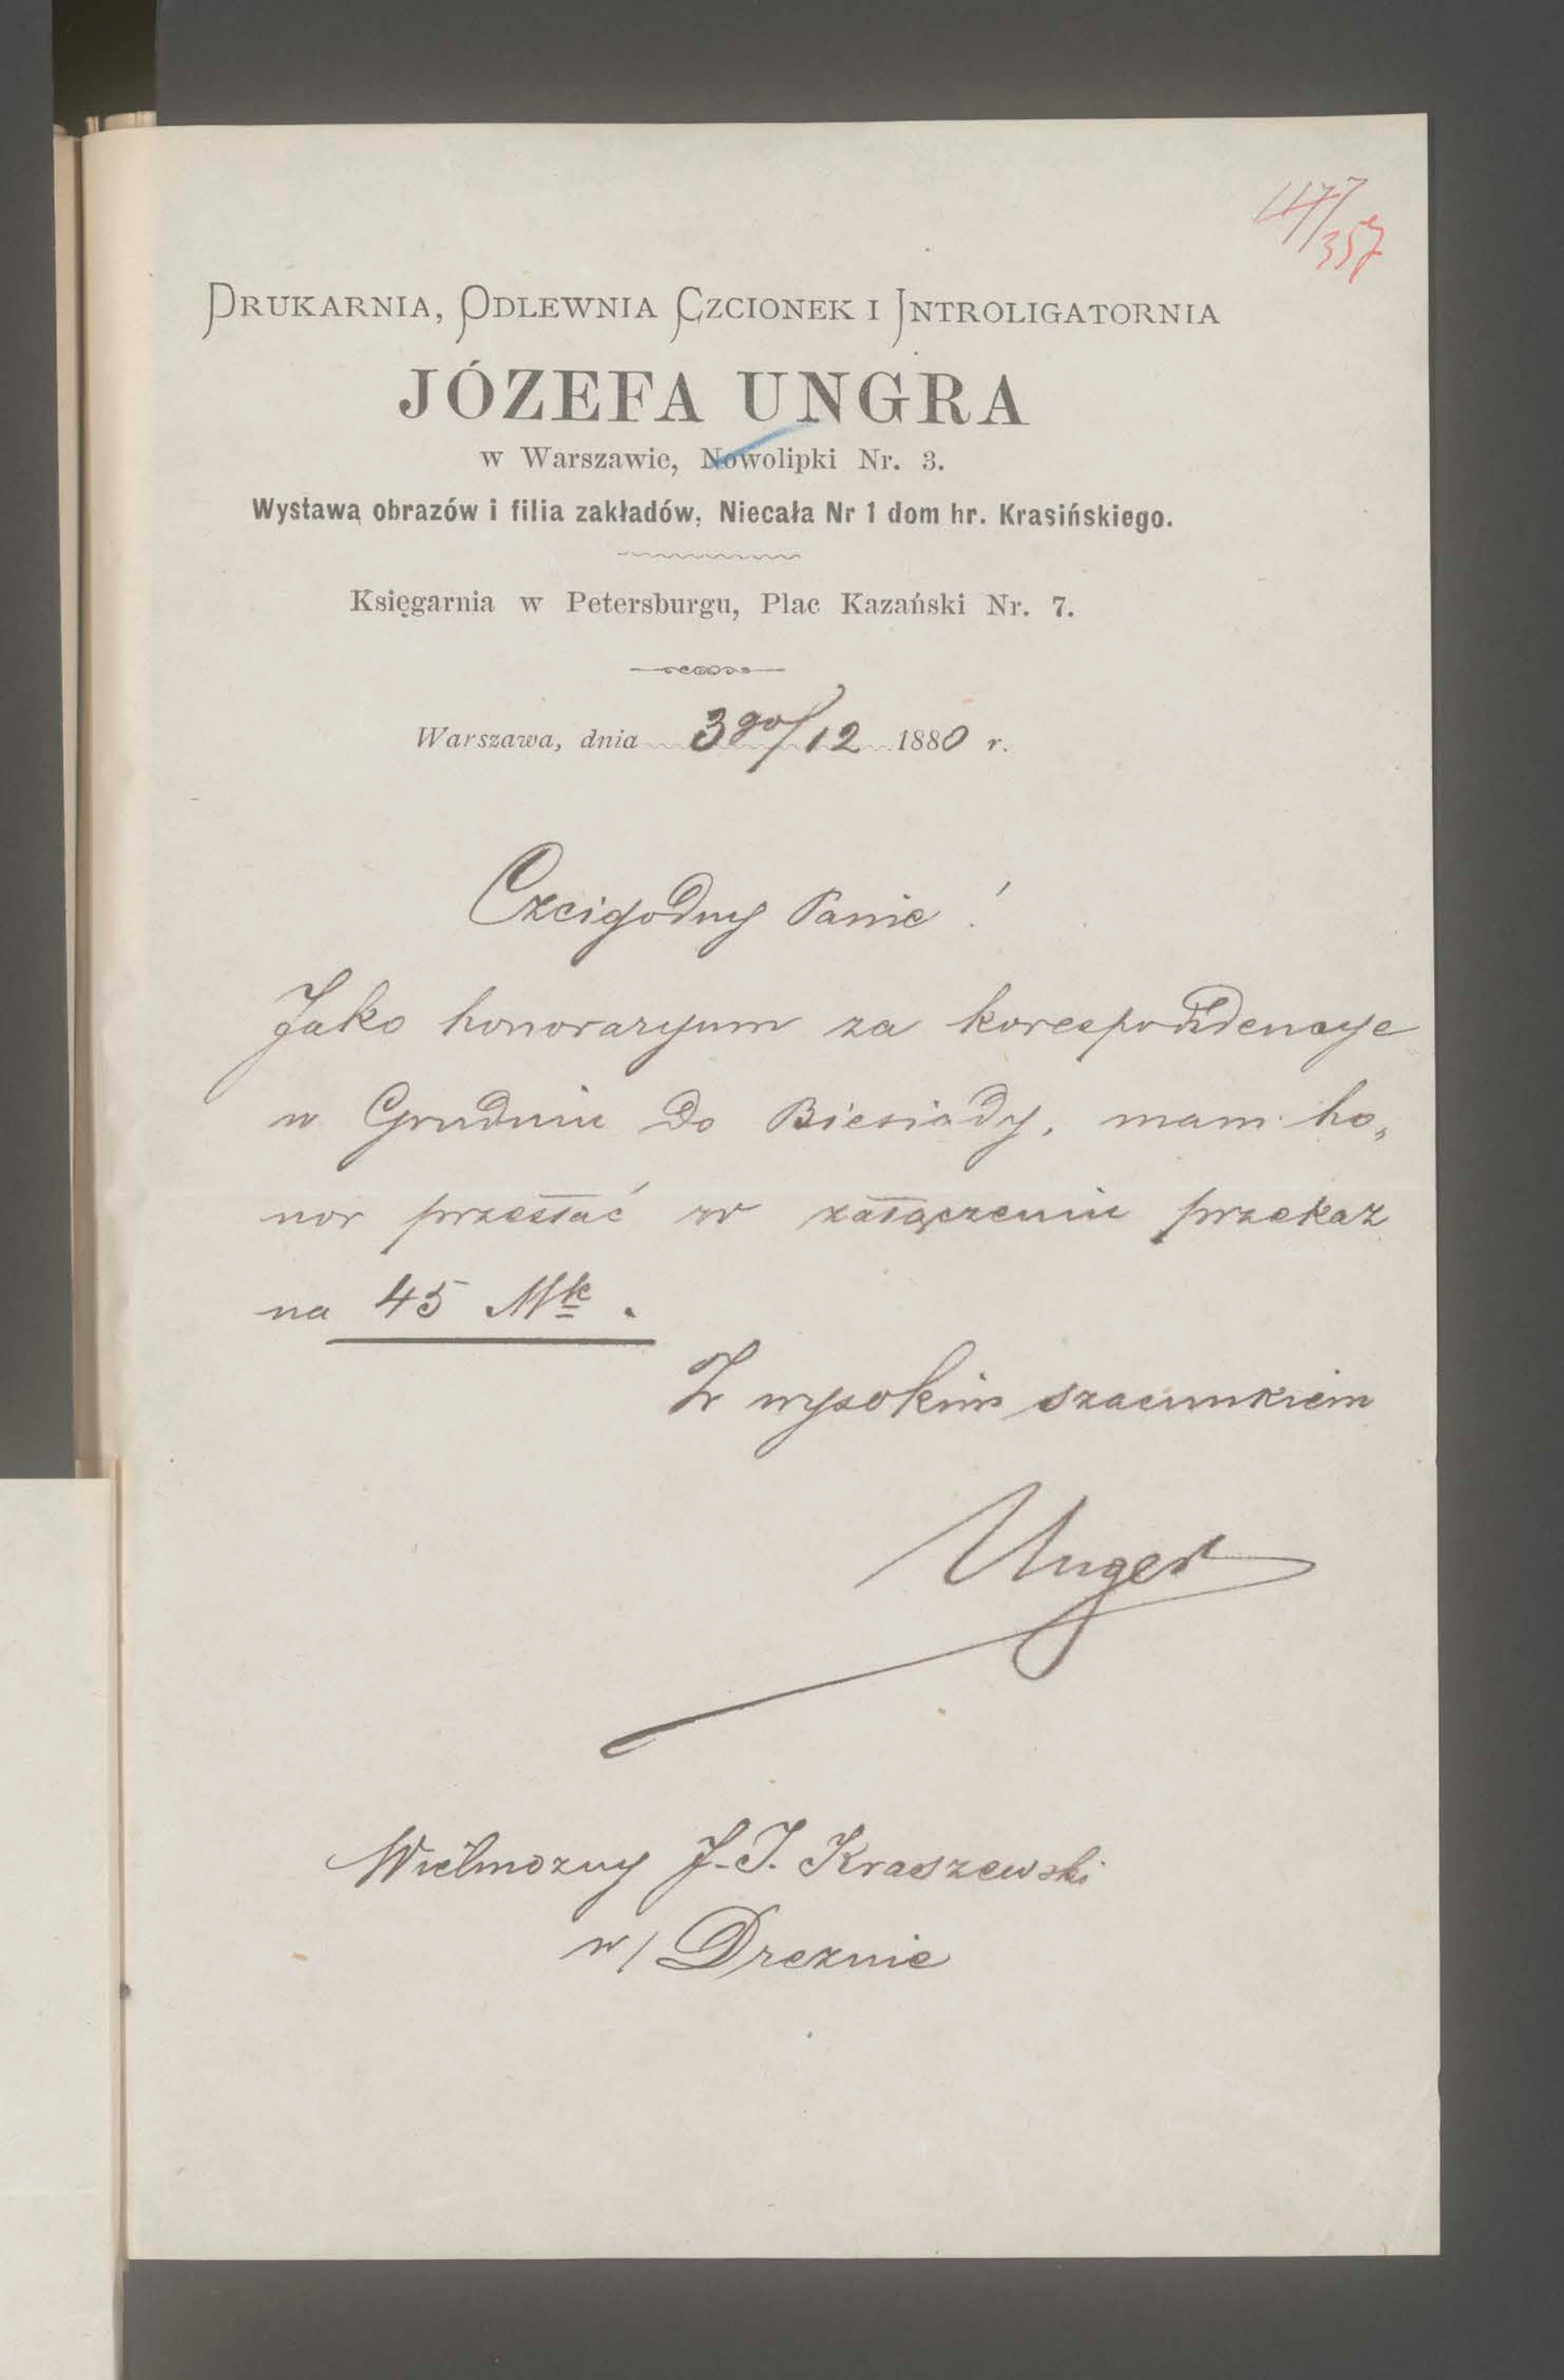 147/357
Drukarnia, Odlewnia Czcionek i Introligatornia
JÓZEFA UNGRA
w Warszawie, Nowolipki Nr. 3.
Wystawa obrazów i filia zakładów, Niecała Nr 1 dom hr. Krasińskiego.
Księgarnia w Petersburgu, Plac Kazański Nr. 7.
Warszawa, dnia 3go/12 1880 r.
Czcigodny Panie!
Jako honoraryum za korespondencye
w Grudniu do Biesiady, mam ho„
nor przesłać w załączeniu przekaz
na 45 Mk.
Z wysokim szacunkiem
Unger
Wielmożny J. I. Kraszewski
w/ Dreznie